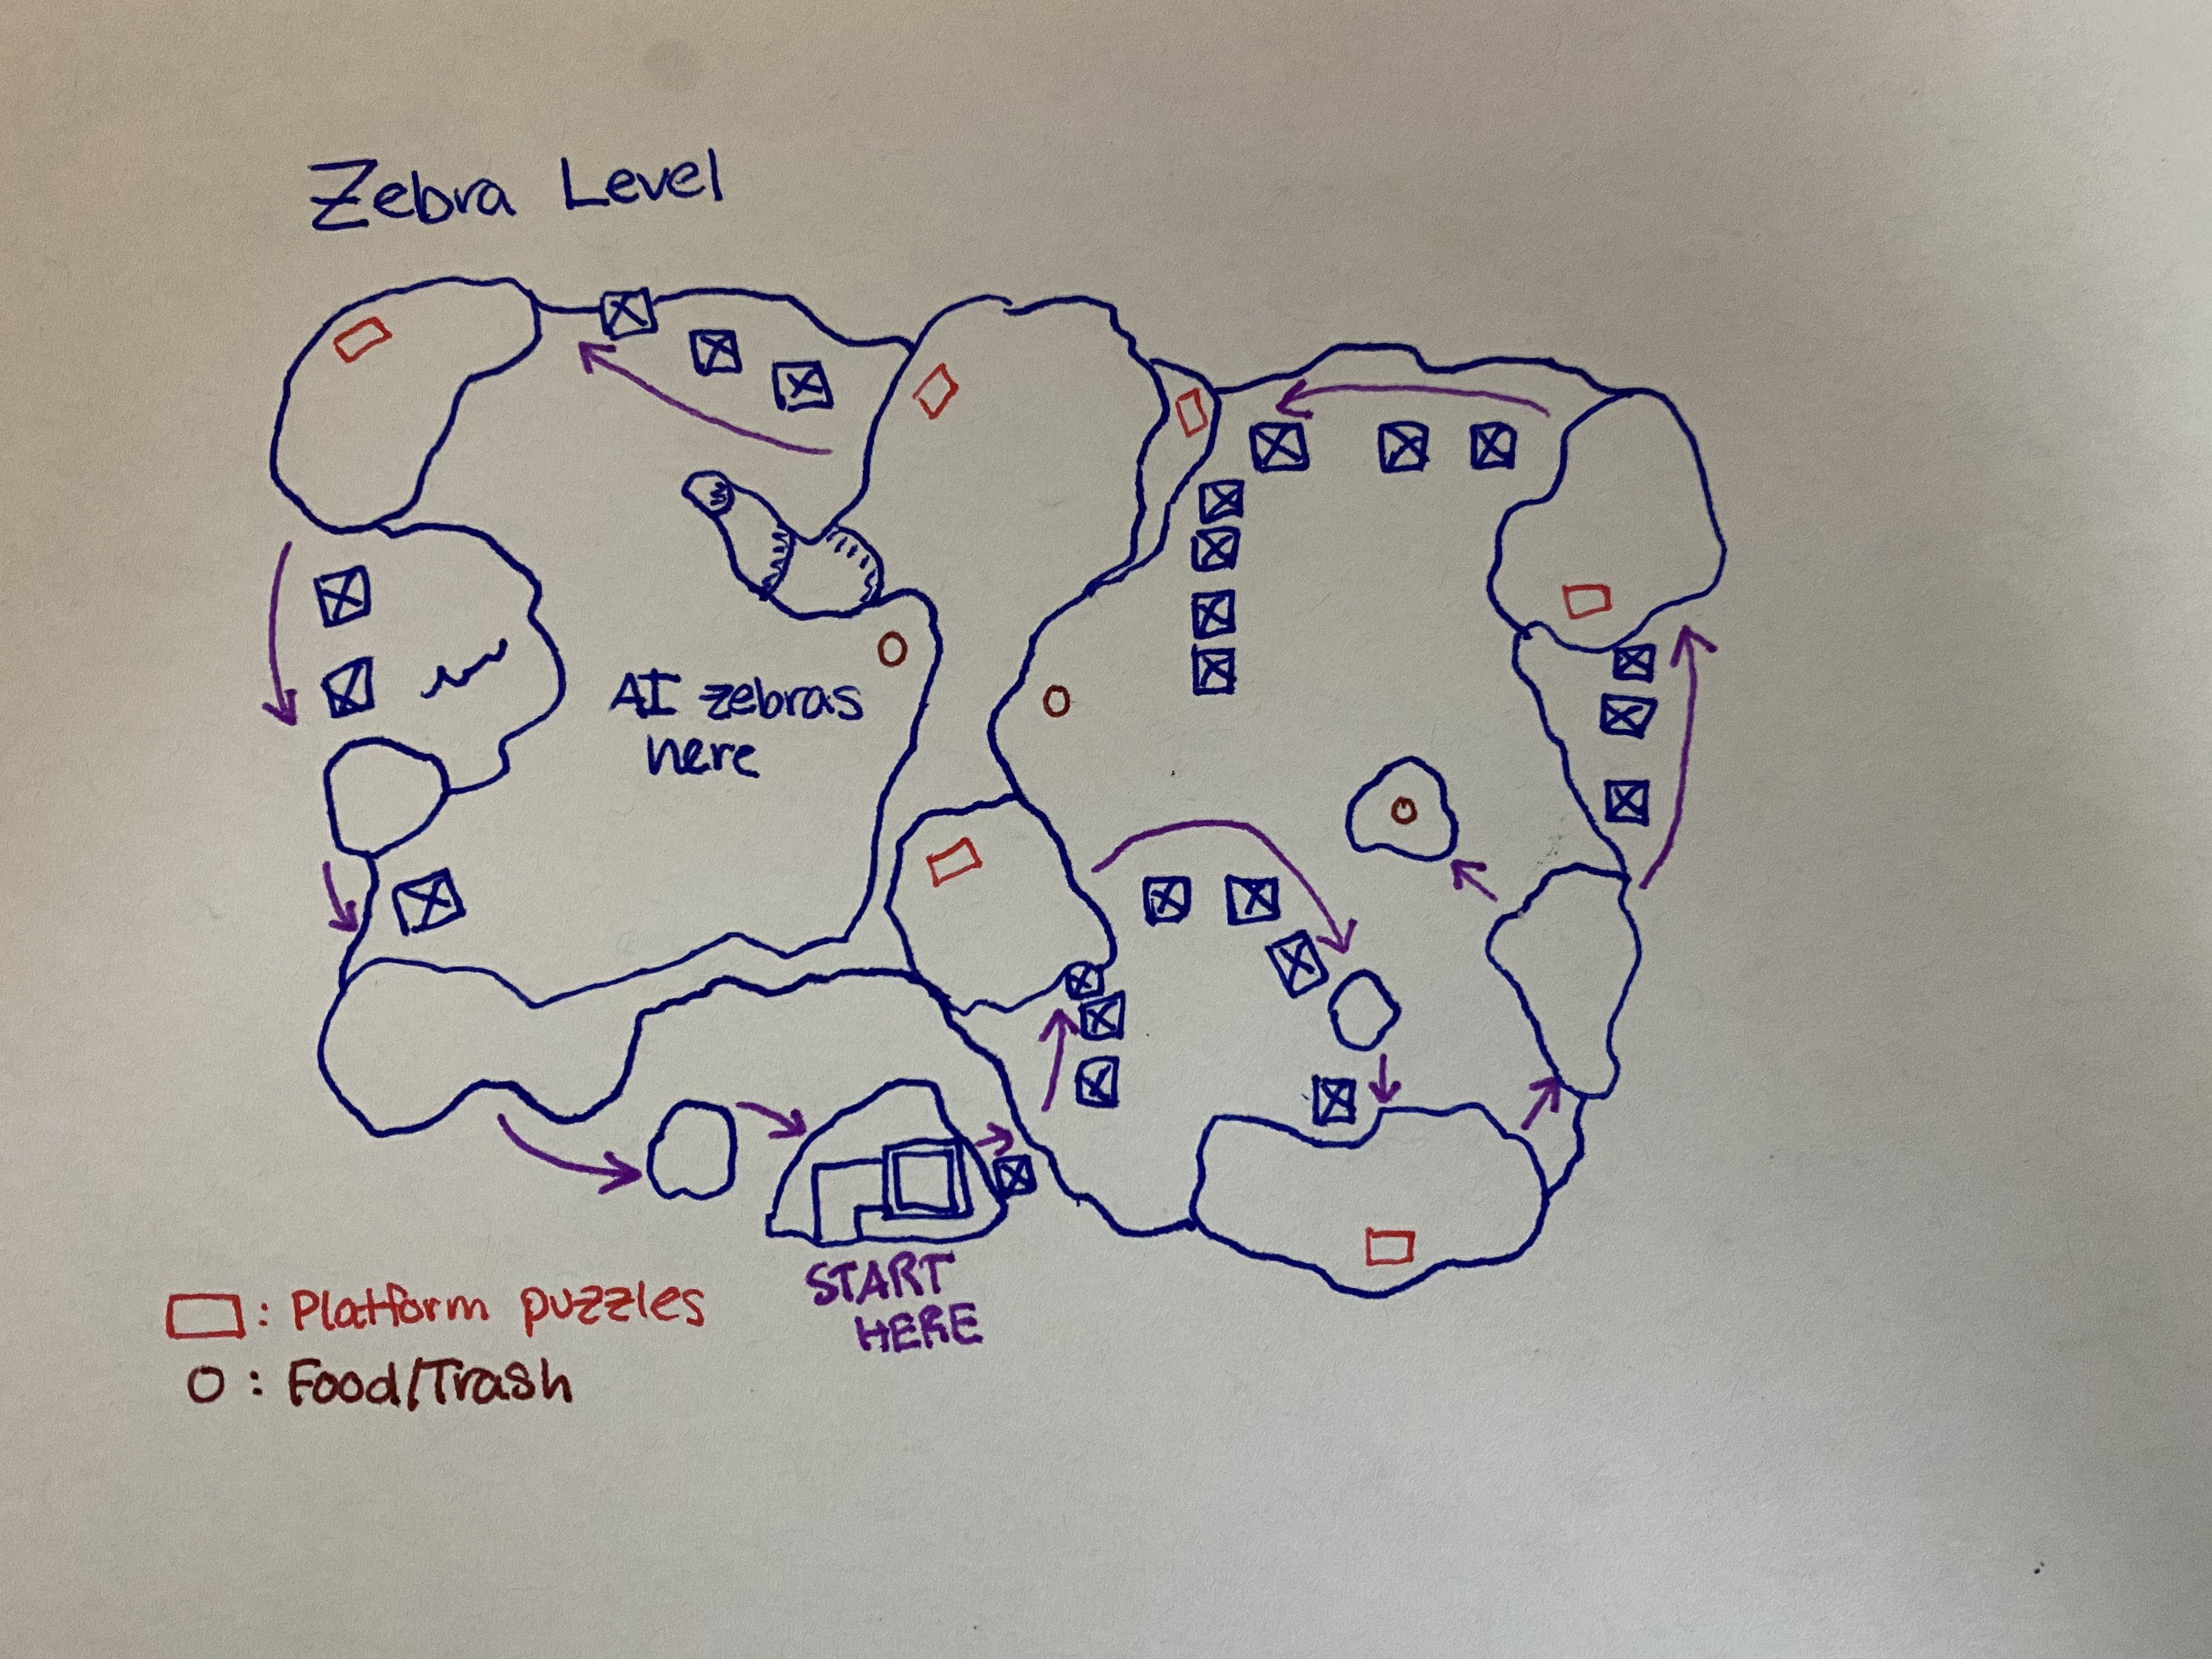 Zebra Level
AI zebras
here
START
HERE
: Platform puzzles
: Food/Trash